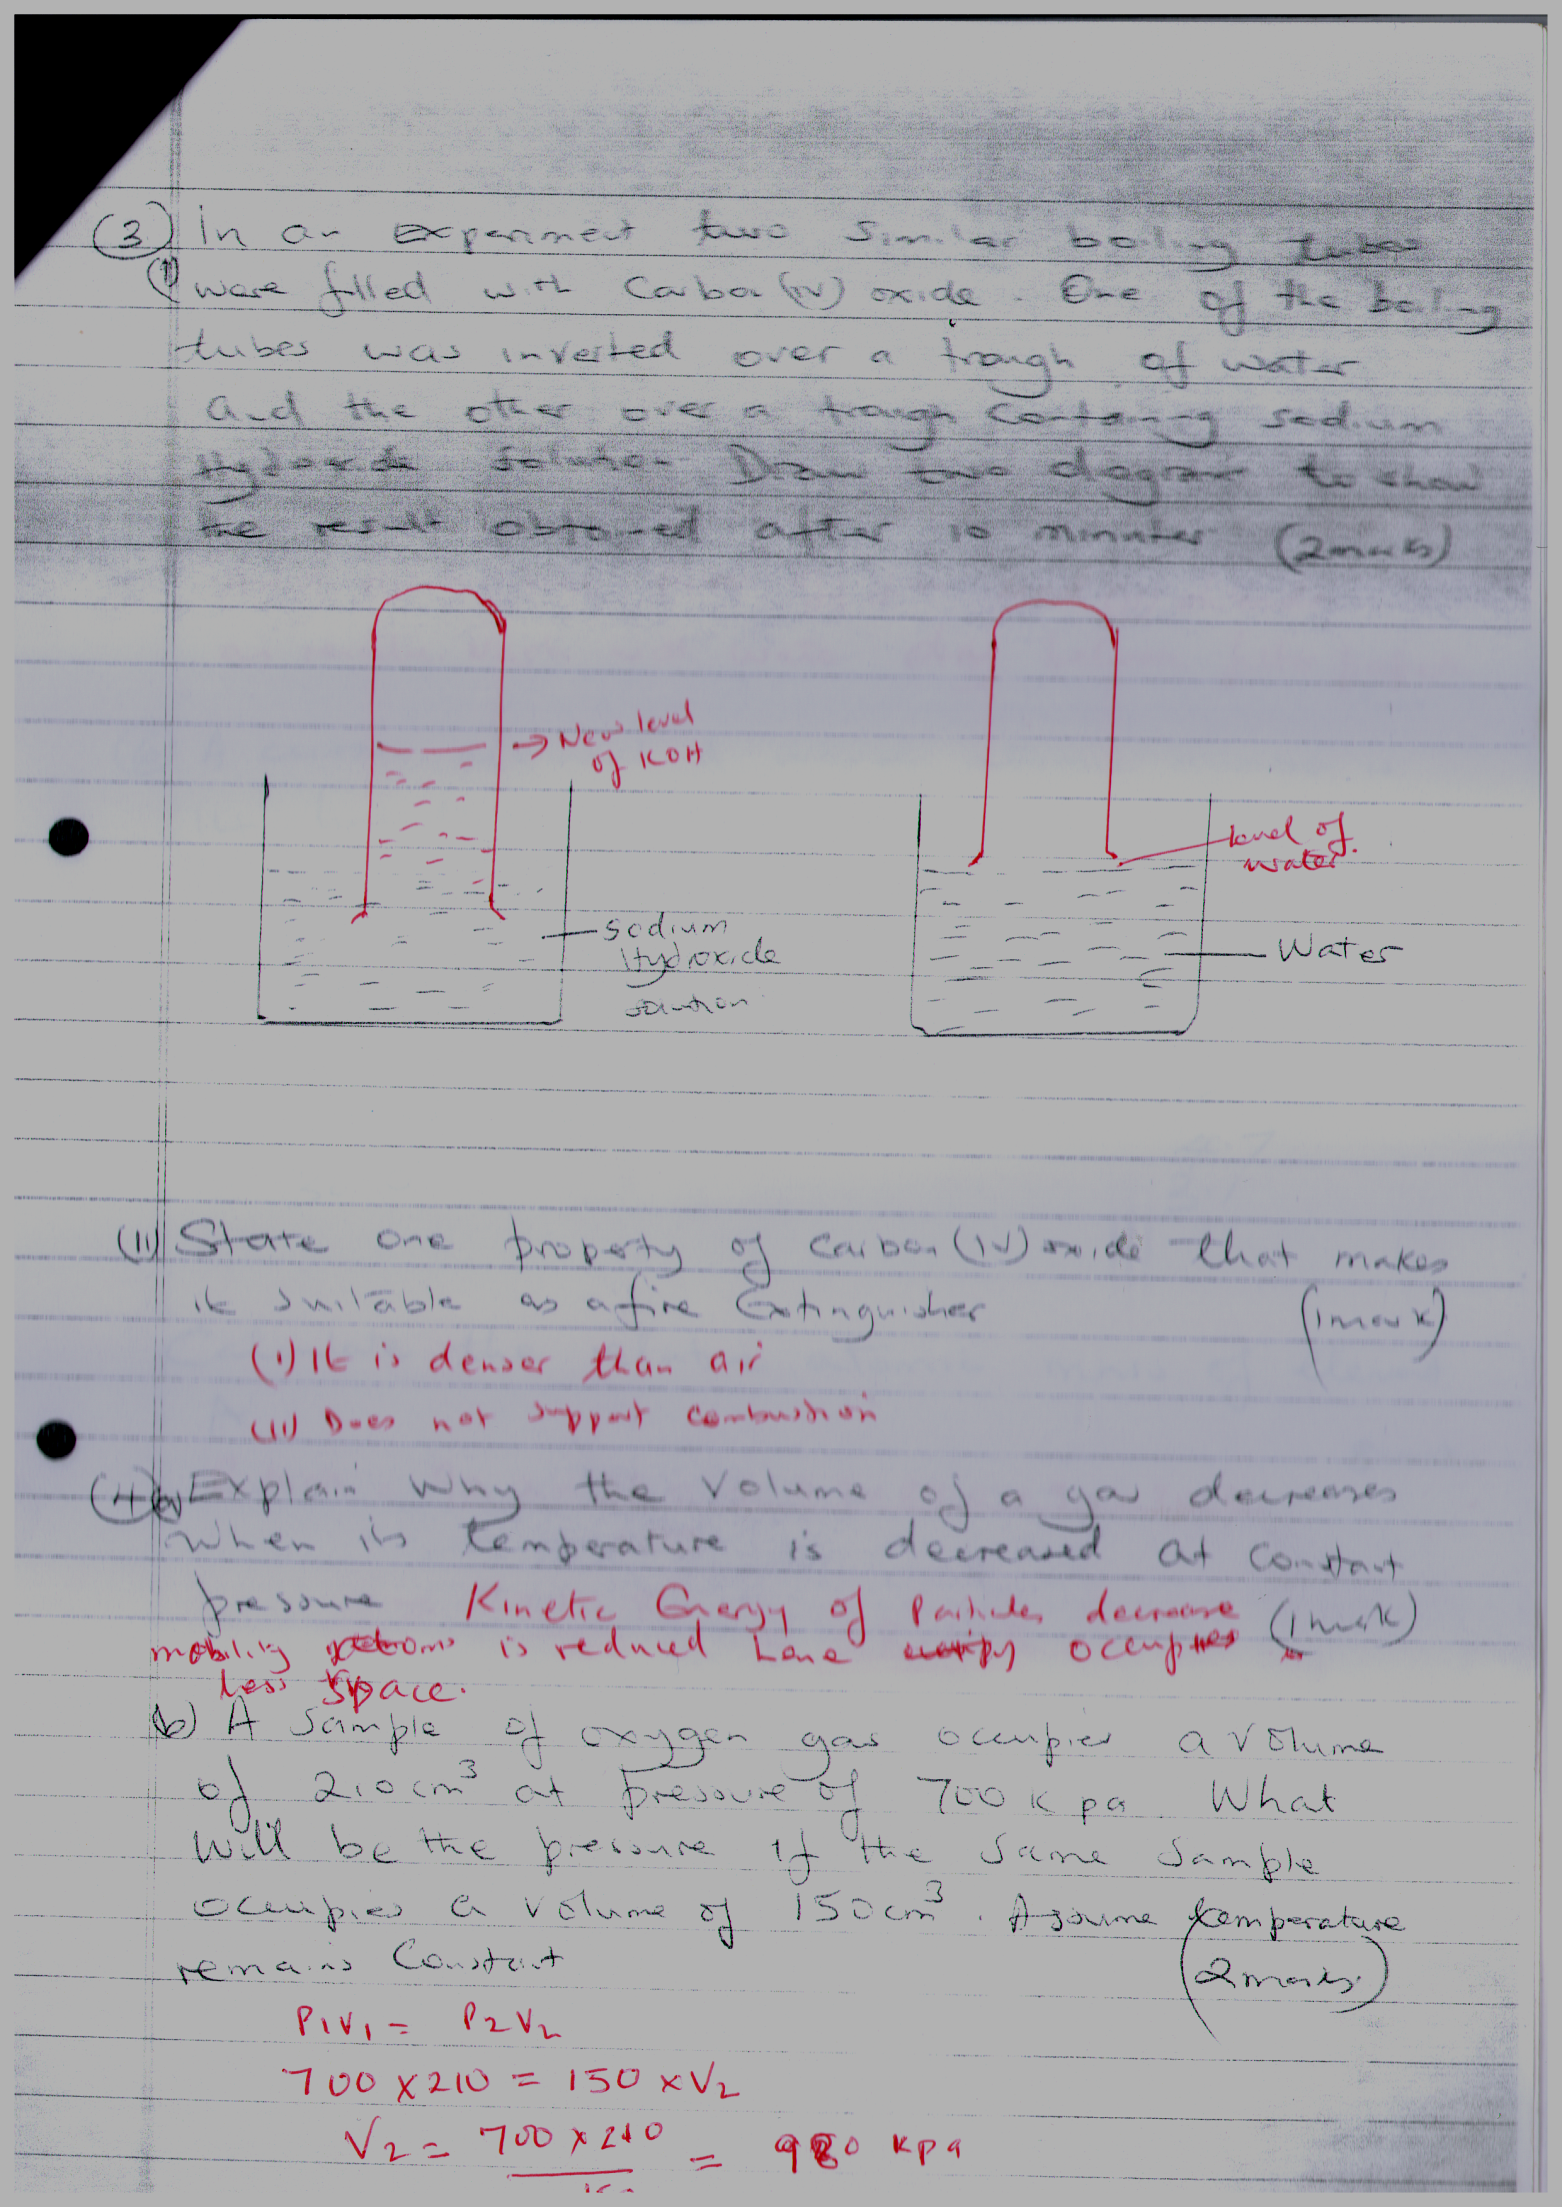 (3) In an experiment two similar boiling tubes
(i) were filled with Carbon (IV) oxide. One of the boiling
tubes was inverted over a trough of water
and the other over a trough containing sodium
Hydroxide solution Draw two diagrams to show
the result obtained after 10 minutes (2marks)
→ New level
of KOH
level of
water.
Sodium
Hydroxide
solution
Water
(ii) State one property of Carbon (IV) oxide that makes
it suitable as a fire Extinguisher (1mark)
(i) It is denser than air
(ii) Does not support combustion
(4)(a) Explain why the volume of a gas decreases
when its temperature is decreased at constant
pressure Kinetic Energy of Particles decrease (1mark)
mobility is reduced hence occupies
less space.
(b) A sample of oxygen gas occupies a volume
of 210cm³ at pressure of 700 Kpa. What
will be the pressure if the same sample
occupies a volume of 150cm³. Assume temperature
remains Constant (2marks)
P1V1 = P2V2
700 x 210 = 150 x V2
V2 = 700 x 210 = 980 Kpa
150